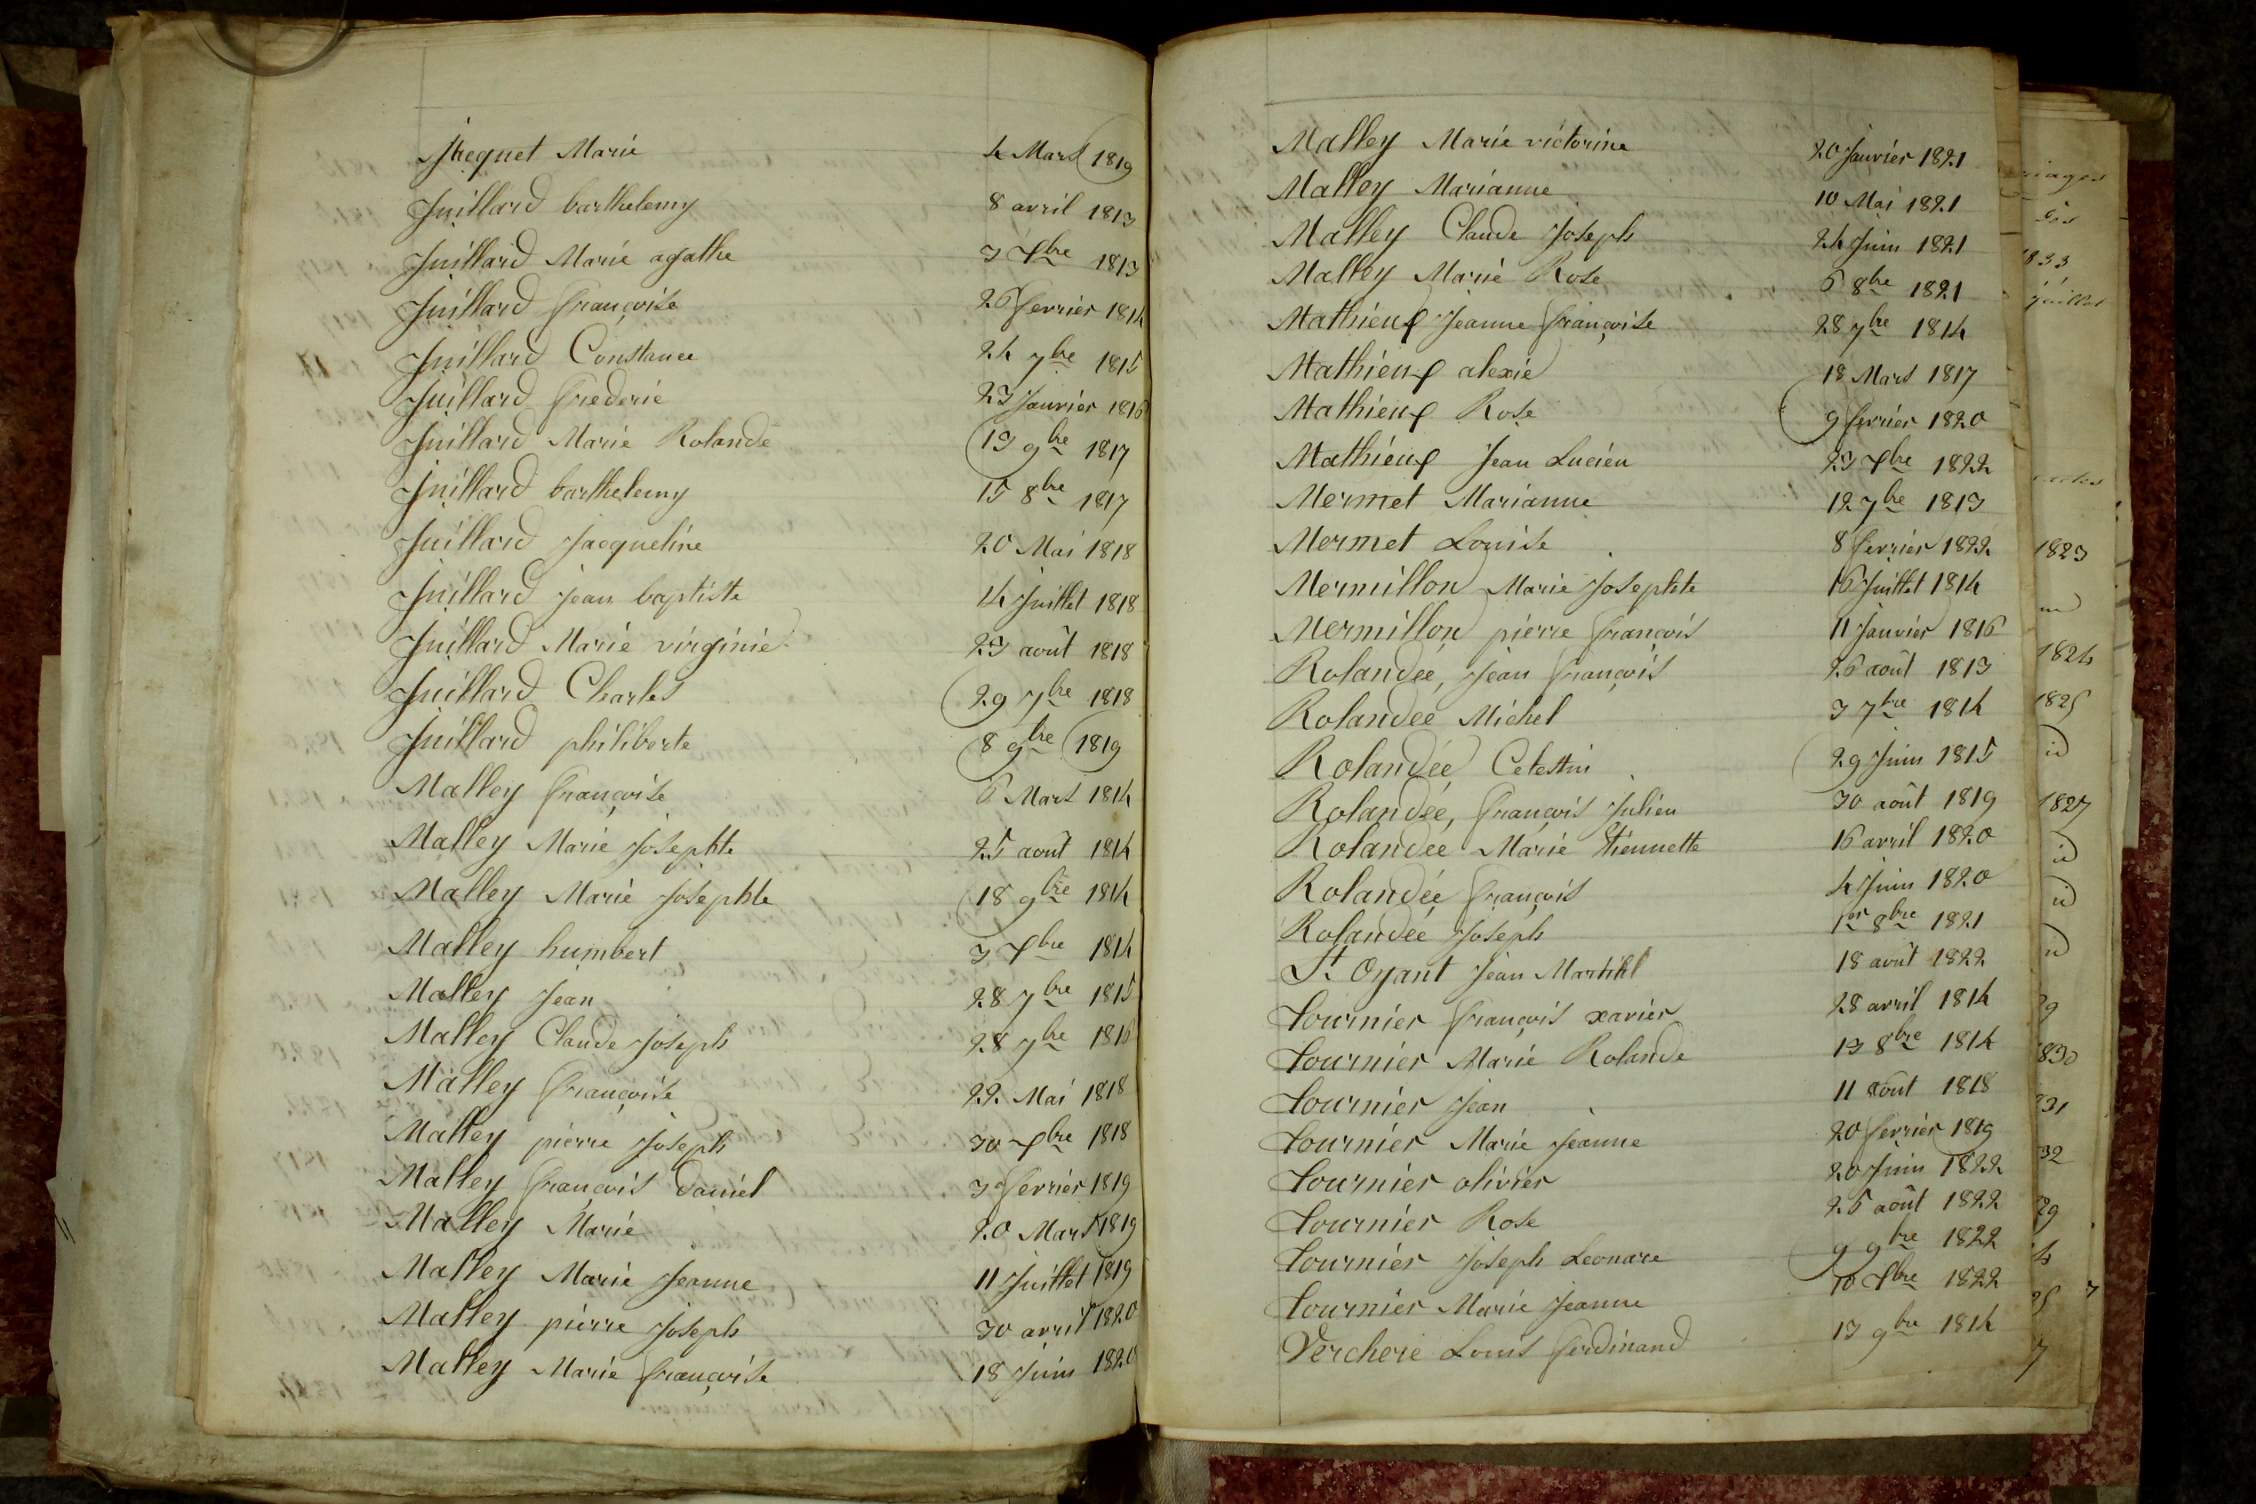 Jacquet Marie 4 Mars 1819
Juillard barthelemy 8 avril 1813
Juillard Marie agathe 3 Xbre 1813
Juillard françoise 26 fevrier 1814
Juillard Constance 24 7bre 1815
Juillard frederic 23 Janvier 1816
Juillard Marie Rolande 13 9bre 1817
Juillard barthelemy 15 8bre 1817
Juillard Jacqueline 20 Mai 1818
Juillard jean baptiste 14 Juillet 1818
Juillard Marie virginie 23 août 1818
Juillard Charles 29 7bre 1818
Juillard philiberte 8 9bre 1819
Malley françoise 6 Mars 1814
Malley Marie Josephte 25 août 1814
Malley Marie Josephte 18 9bre 1814
Malley humbert 3 Xbre 1814
Malley Jean 28 7bre 1815
Malley Claude Joseph 28 7bre 1816
Malley françoise 22 Mai 1818
Malley pierre Joseph 30 Xbre 1818
Malley françois Daniel 3 fevrier 1819
Malley Marie 20 Mars 1819
Malley Marie Jeanne 11 Juillet 1819
Malley pierre Joseph 30 avril 1820
Malley Marie françoise 18 Juin 1820
Malley Marie victorine 20 Janvier 1821
Malley Marianne 10 Mai 1821
Malley Claude Joseph 24 Juin 1821
Malley Marie Rose 6 8bre 1821
Mathieux Jeanne françoise 28 7bre 1814
Mathieux alexie 18 Mars 1817
Mathieux Rose 9 fevrier 1820
Mathieux Jean Lucien 23 Xbre 1822
Mermet Marianne 12 7bre 1813
Mermet Louise 8 fevrier 1822
Mermillon Marie Josephte 16 Juillet 1814
Mermillon pierre françois 11 Janvier 1816
Rolandée, Jean françois 26 août 1813
Rolandée Michel 3 7bre 1814
Rolandée Celestin 29 Juin 1815
Rolandée, françois Julien 30 août 1819
Rolandée Marie Etiennette 16 avril 1820
Rolandée françois 4 Juin 1820
Rolandée Joseph 1er 8bre 1821
St. Oyant Jean 18 août 1822
Tournier françois xavier 28 avril 1814
Tournier Marie Rolande 13 8bre 1814
Tournier Jean 11 août 1818
Tournier Marie Jeanne 20 fevrier 1819
Tournier olivier 20 Juin 1822
Tournier Rose 25 août 1822
Tournier Joseph Leonard 9 9bre 1822
Tournier Marie Jeanne 10 Xbre 1822
Verchere Louis ferdinand 13 9bre 1814
juillet
1823
1824
1825
id
1827
id
id
id